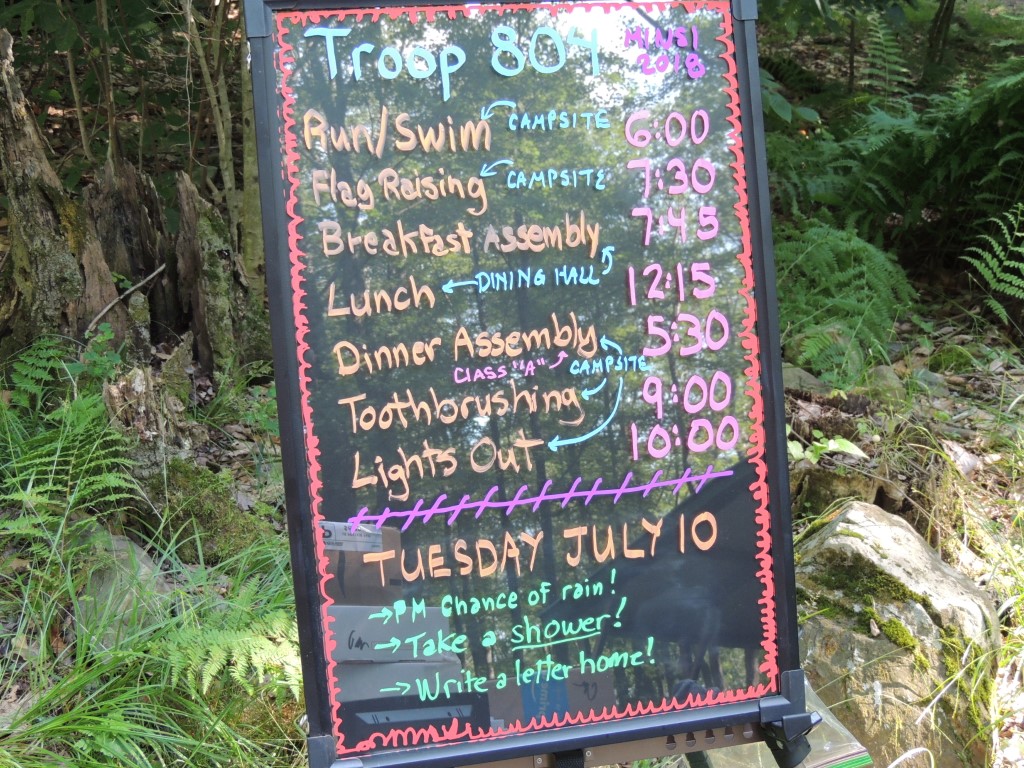 Troop 804 MINSI
2018
Run/Swim CAMPSITE 6:00
Flag Raising CAMPSITE 7:30
Breakfast Assembly 7:45
Lunch DINING HALL 12:15
Dinner Assembly 5:30
CLASS "A" CAMPSITE
Toothbrushing 9:00
Lights Out 10:00
TUESDAY JULY 10
→ PM Chance of rain!
→ Take a shower!
→ Write a letter home!